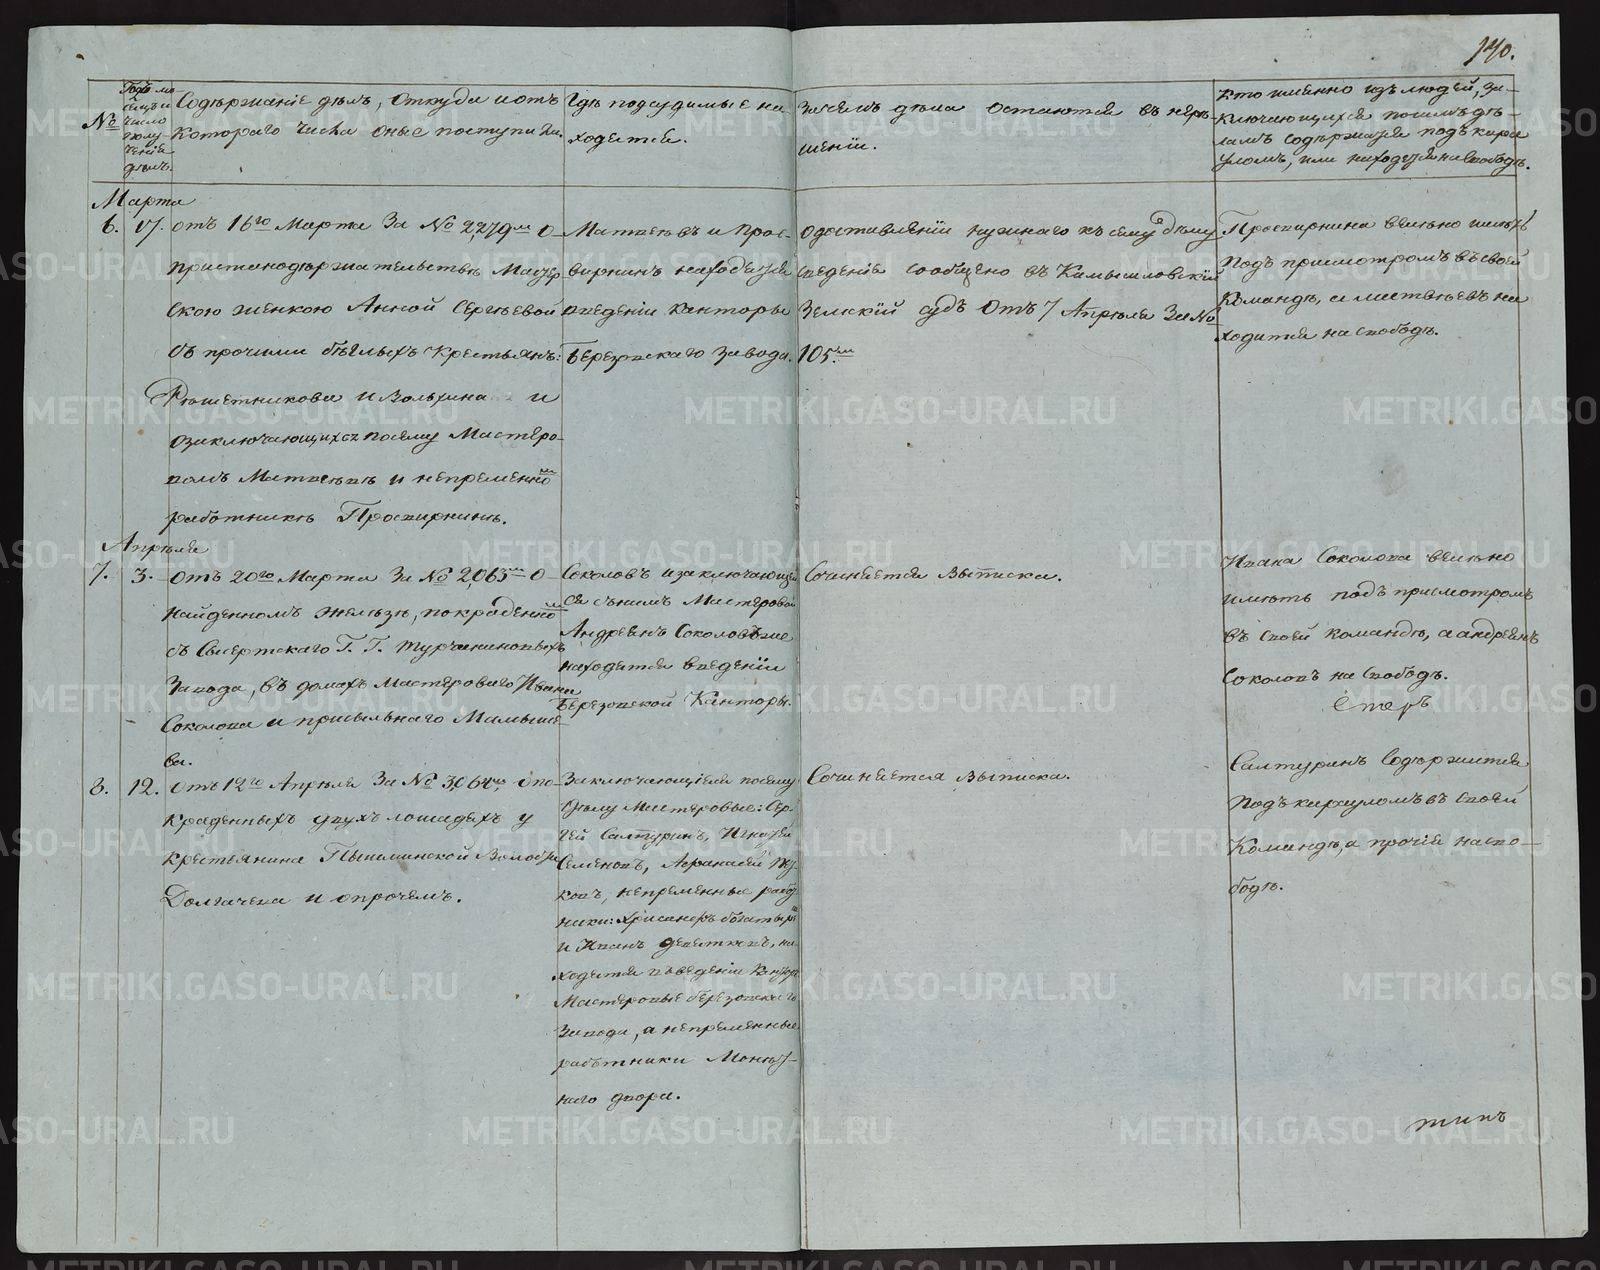 140.
№
Годъ мѣ-
сяцъ и
число
полу-
ченія
дѣлъ.
Содержаніе дѣлъ, откуда и отъ
котораго числа оные поступили.
Гдѣ подсудимые на-
ходятся.
Зачемъ дѣла остаются въ нерѣ-
шеніи.
Кто именно изъ людей, за-
ключающихся по симъ дѣ-
ламъ содержатся подъ кара-
уломъ, или находятся на свободѣ.
Марта
6. 17. отъ 16го Марта за № 2,279м о
пристанодержательствѣ Мастер-
скою женкою Анной Сергѣевой
съ прочими бѣглыхъ крестьянъ:
Рѣшетникова и Вольхина и
о заключающихся по сему Мастеро-
вомъ Матвѣевѣ и непременном
работникѣ Просвирнинѣ.
Матвѣевъ и Прос-
вирнинъ находятся
в веденіи Канторы
Березовскаго завода.
О доставленіи нужнаго къ сему дѣлу
сведенія сообщено въ Камышловскій
Земскій судъ отъ 7 Апрѣля за №
105.м
Просвирнина велѣно имѣть
подъ присмотромъ въ своей
Командѣ, а Матвѣевъ на-
ходится на свободѣ.
Апрѣля
7. 3. отъ 20го Марта за № 2,065м о
найденномъ желѣзѣ, покраденном
съ Сысертскаго Г. Г. Турчаниновыхъ
завода, въ домахъ Мастероваго Ивана
Соколова и ссыльнаго Малыше-
ва.
Соколовъ и заключающій-
ся съ нимъ Мастеровой
Андреянъ Соколовъ же
находятся в веденіи
Березовской Канторы.
Сочиняется выписка.
Ивана Соколова велѣно
имѣть подъ присмотромъ
въ своей командѣ, а андреянъ
Соколовъ на свободѣ.
Стеръ
8. 12. отъ 12го Апрѣля за № 3,064м о по-
краденныхъ двухъ лошадяхъ у
крестьянина Пышминской Волости
Долгачева и о прочемъ.
Заключающіеся по сему
дѣлу Мастеровые: Сер-
гей Салтуринъ, Игнатей
Семеновъ, Афанасей Жу-
ковъ, непременные работ-
ники: Хрисанфъ богатыре
и Иванъ девятковъ, на-
ходятся въ веденіи Канторы
Мастеровые березовскаго
завода, а непременные
работники Монет-
наго двора.
Сочиняется выписка.
Салтуринъ содержится
подъ карауломъ въ своей
Командѣ, а прочіе на сво-
бодѣ.
METRIKI.GASO-URAL.RU